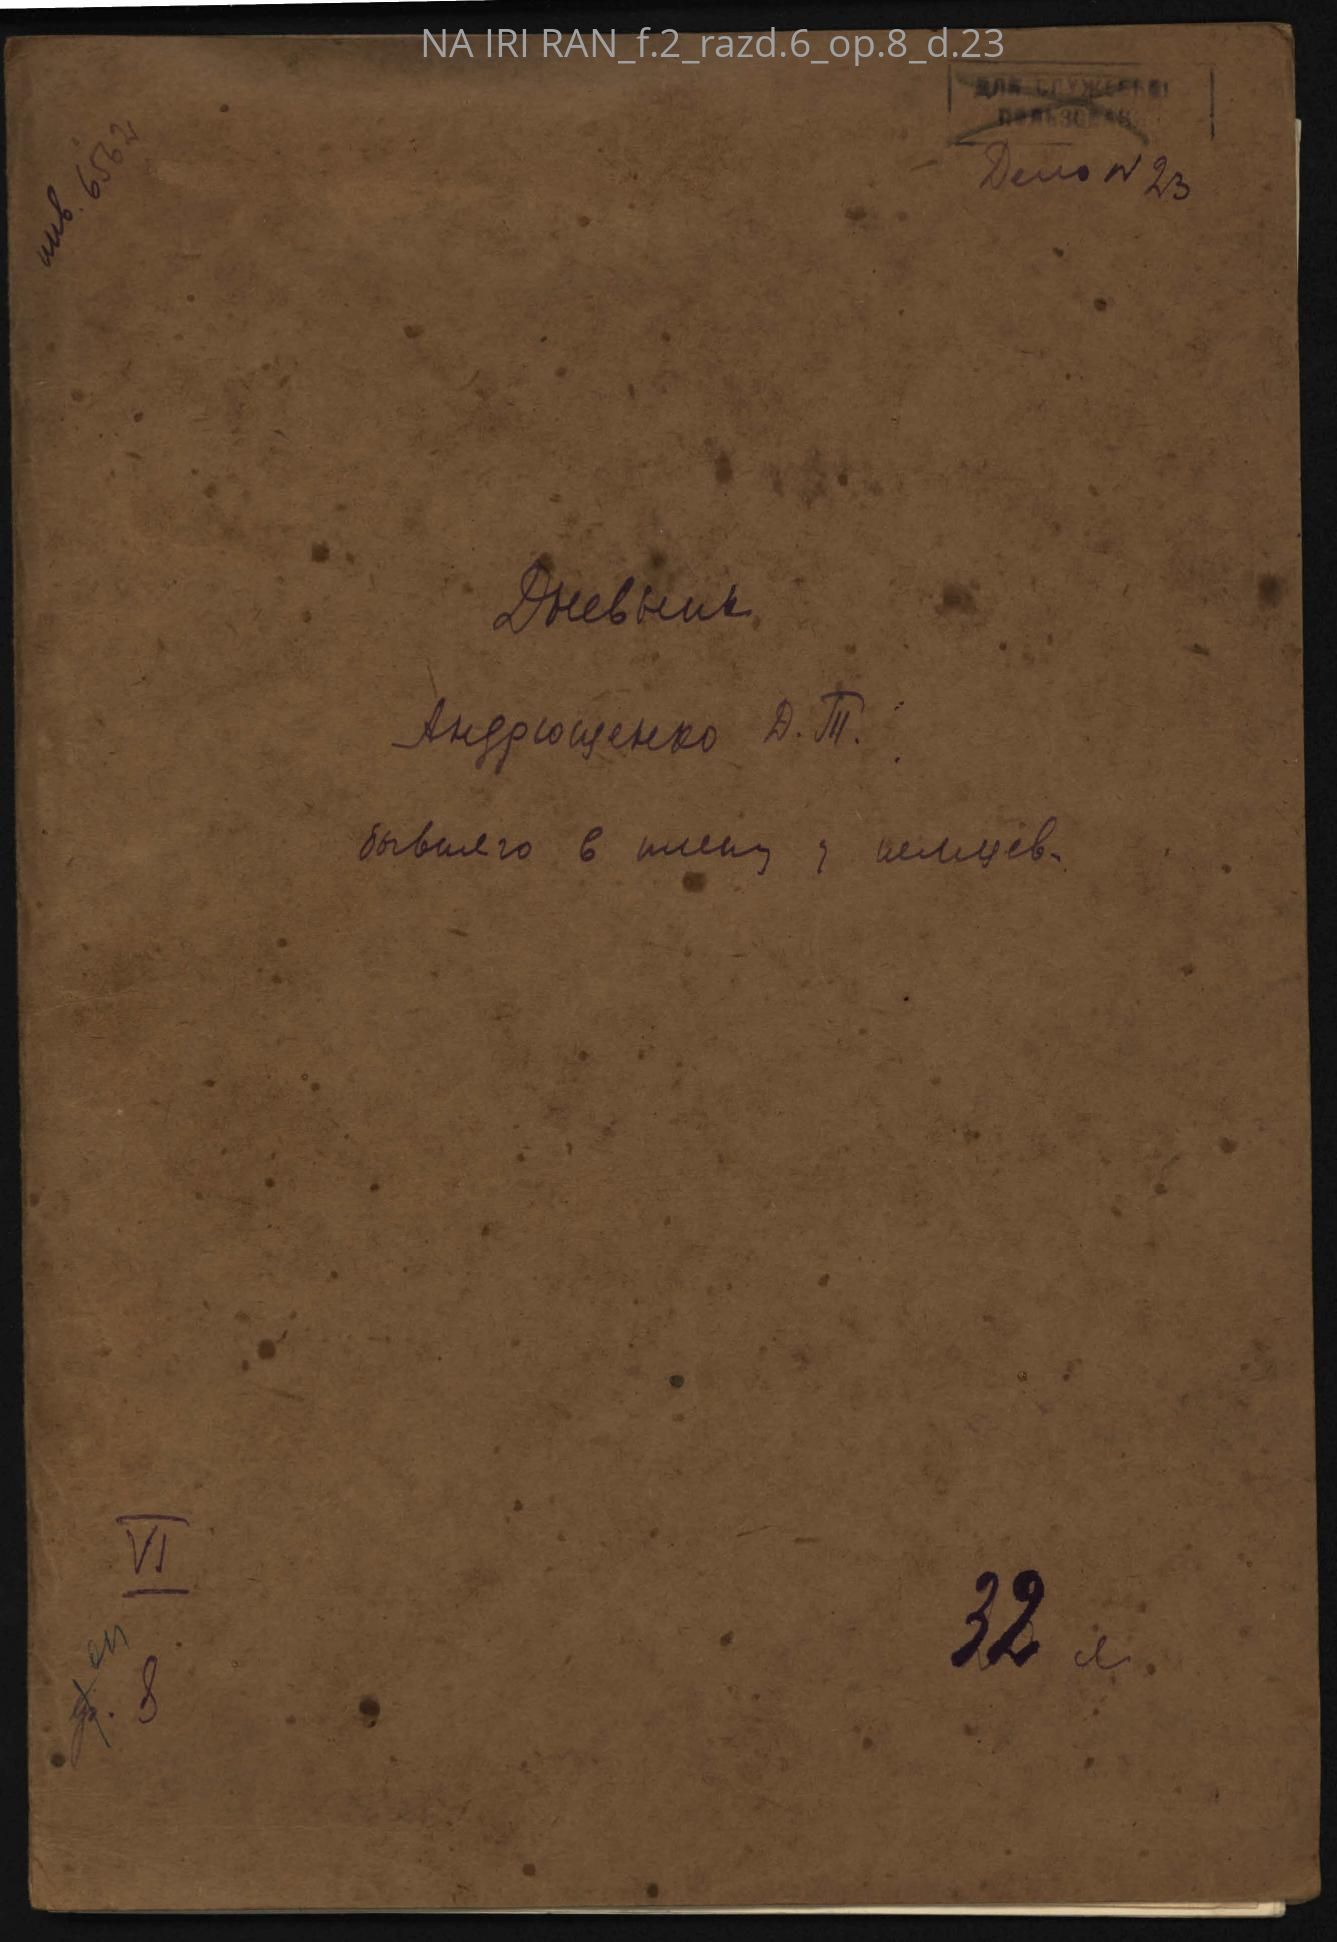 NA IRI RAN_f.2_razd.6_op.8_d.23
ДЛЯ СЛУЖЕБН
ПОЛЬЗОВАН
Дело № 23
инв. 6562
Дневник
Андрющенко Д. Т.
бывшего в плену у немцев.
VI
оп
8
32 л